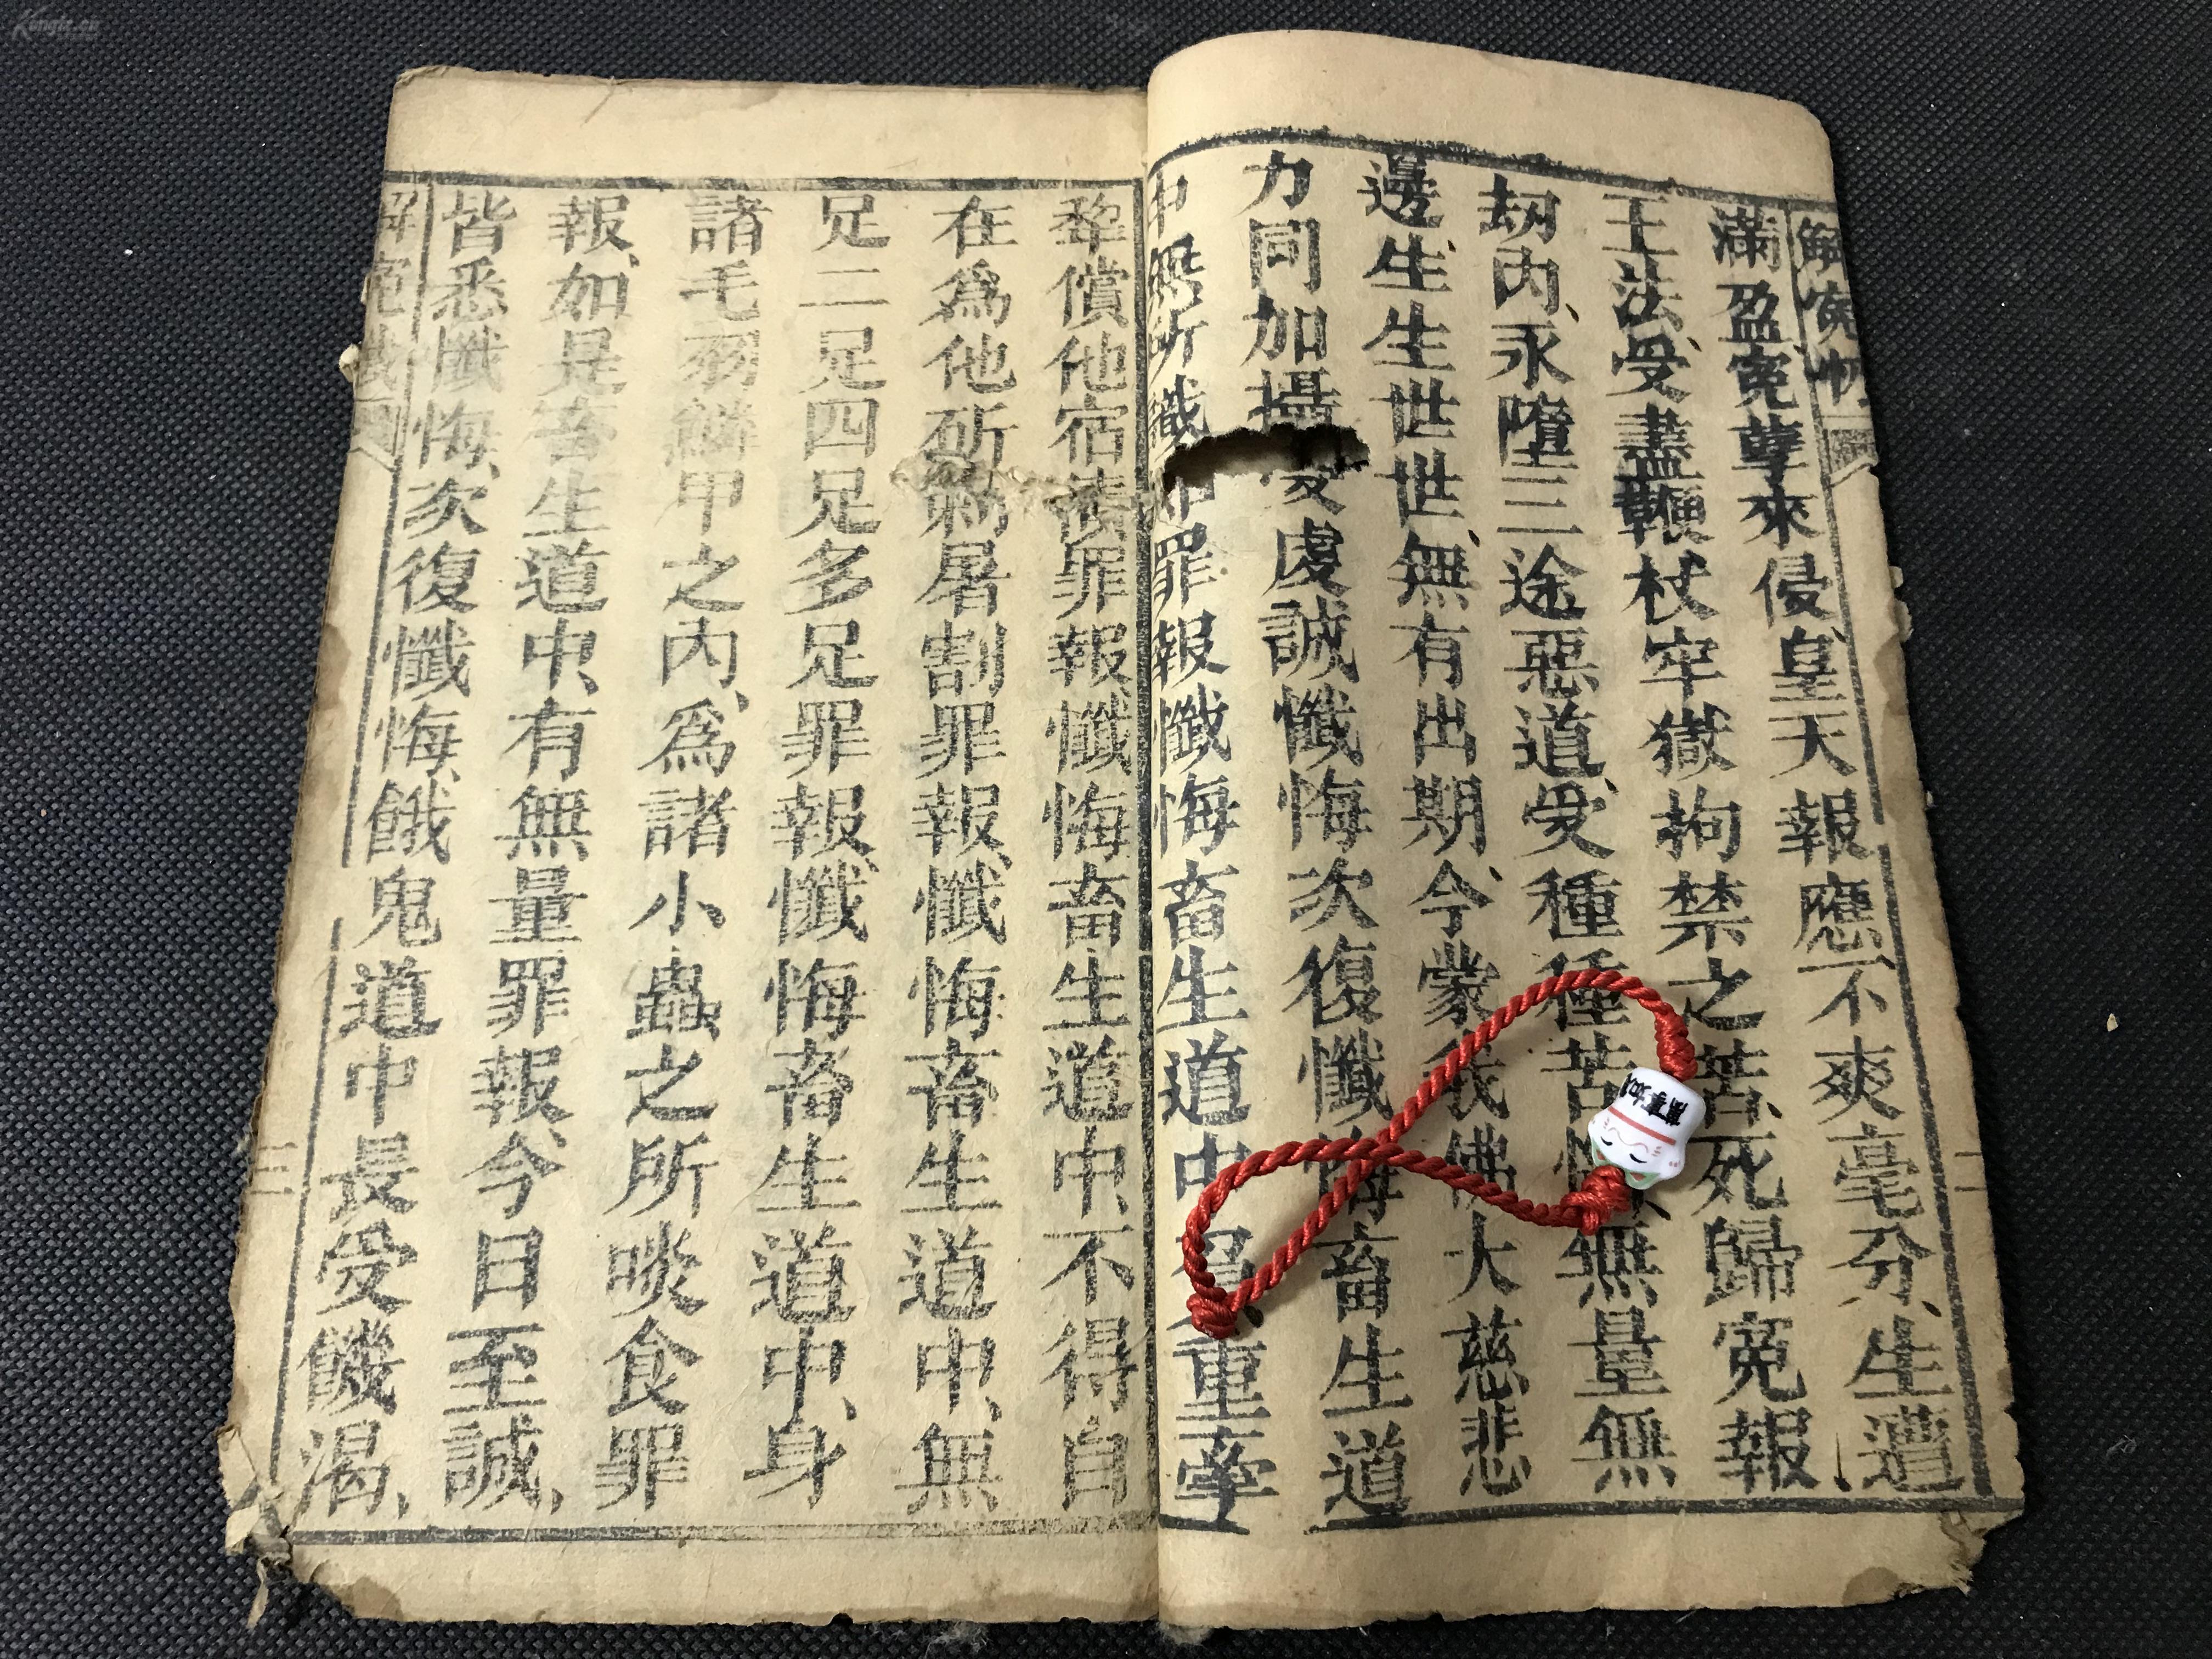 解寃
滿盈寃孽來侵皇天報應不爽毫分、生遭
王法、受盡鞭杖牢獄拘禁之苦、死歸寃報
劫內、永墮三途惡道、受種種苦無量無
邊、生生世世、無有出期、今蒙我佛大慈悲
力同加攝受虔誠懺悔次復懺悔畜生道
中無所識罪報懺悔畜生道中重牽
犂償他宿債罪報懺悔畜生道中、不得自
在爲他斫刺屠割罪報、懺悔畜生道中、無
足二足四足多足罪報懺悔畜生道中、身
諸毛羽鱗甲之內、爲諸小蟲之所啖食罪
報、如是畜生道中、有無量罪報、今日至誠、
皆悉懺悔、次復懺悔、餓鬼道中長受饑渴、
解寃
三
Kongfz.cn